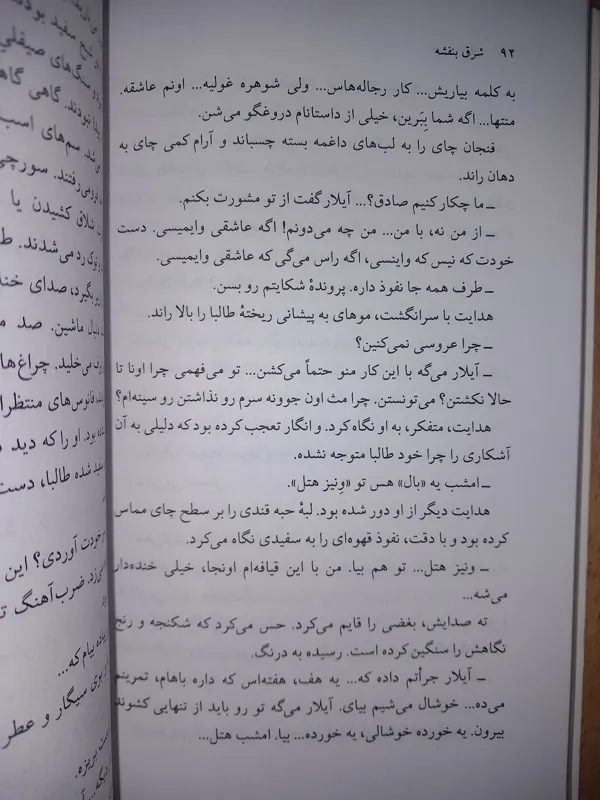 ۹۲ شرق بنفشه
به کلمه بیاریش... کار رجاله‌هاس... ولی شوهره غولیه... اونم عاشقه.
منتها... اگه شما بِبَرین، خیلی از داستانام دروغگو می‌شن.
فنجان چای را به لب‌های داغمه بسته چسباند و آرام کمی چای به
دهان راند.
ــ ما چکار کنیم صادق؟... آیلار گفت از تو مشورت بکنم.
ــ از من نه، با من... من چه می‌دونم! اگه عاشقی وایمیسی. دست
خودت که نیس که واینسی، اگه راس می‌گی که عاشقی وایمیسی.
ــ طرف همه جا نفوذ داره. پروندهٔ شکایتم رو بسن.
هدایت با سرانگشت، موهای به پیشانی ریختهٔ طالبا را بالا راند.
ــ چرا عروسی نمی‌کنین؟
ــ آیلار می‌گه با این کار منو حتماً می‌کشن... تو می‌فهمی چرا اونا تا
حالا نکشتن؟ می‌تونستن. چرا مث اون جوونه سرم رو نذاشتن رو سینه‌ام؟
هدایت، متفکر، به او نگاه کرد. و انگار تعجب کرده بود که دلیلی به آن
آشکاری را چرا خود طالبا متوجه نشده.
ــ امشب یه «بال» هس تو «وِنیز هتل».
هدایت دیگر از او دور شده بود. لبهٔ حبه قندی را بر سطح چای مماس
کرده بود و با دقت، نفوذ قهوه‌ای را به سفیدی نگاه می‌کرد.
ــ ونیز هتل... تو هم بیا. من با این قیافه‌ام اونجا، خیلی خنده‌دار
می‌شه...
ته صدایش، بغضی را قایم می‌کرد. حس می‌کرد که شکنجه و رنج
نگاهش را سنگین کرده است. رسیده به درنگ.
ــ آیلار جرأتم داده که... یه هف، هفته‌اس که داره باهام، تمرینم
می‌ده... خوشال می‌شیم بیای. آیلار می‌گه تو رو باید از تنهایی کشوند
بیرون. یه خورده خوشالی، یه خورده... بیا. امشب هتل...
سفید بودند
سنگ‌های صیقلی
نبودند. گاهی
شد. سم‌های اسب
می‌رفتند. سورچی
شلاق کشیدن یا
رد می‌شدند.
بگیرد، صدای
دنبال ماشین. صد
می‌خلید. چراغ‌ها
فانوس‌های
بود. او را که دید
سفید شده طالبا، دست
خودت آوردی؟ این
ضرب‌آهنگ
بیام که...
بوی سیگار و عطر
بریزه.
دیگه...